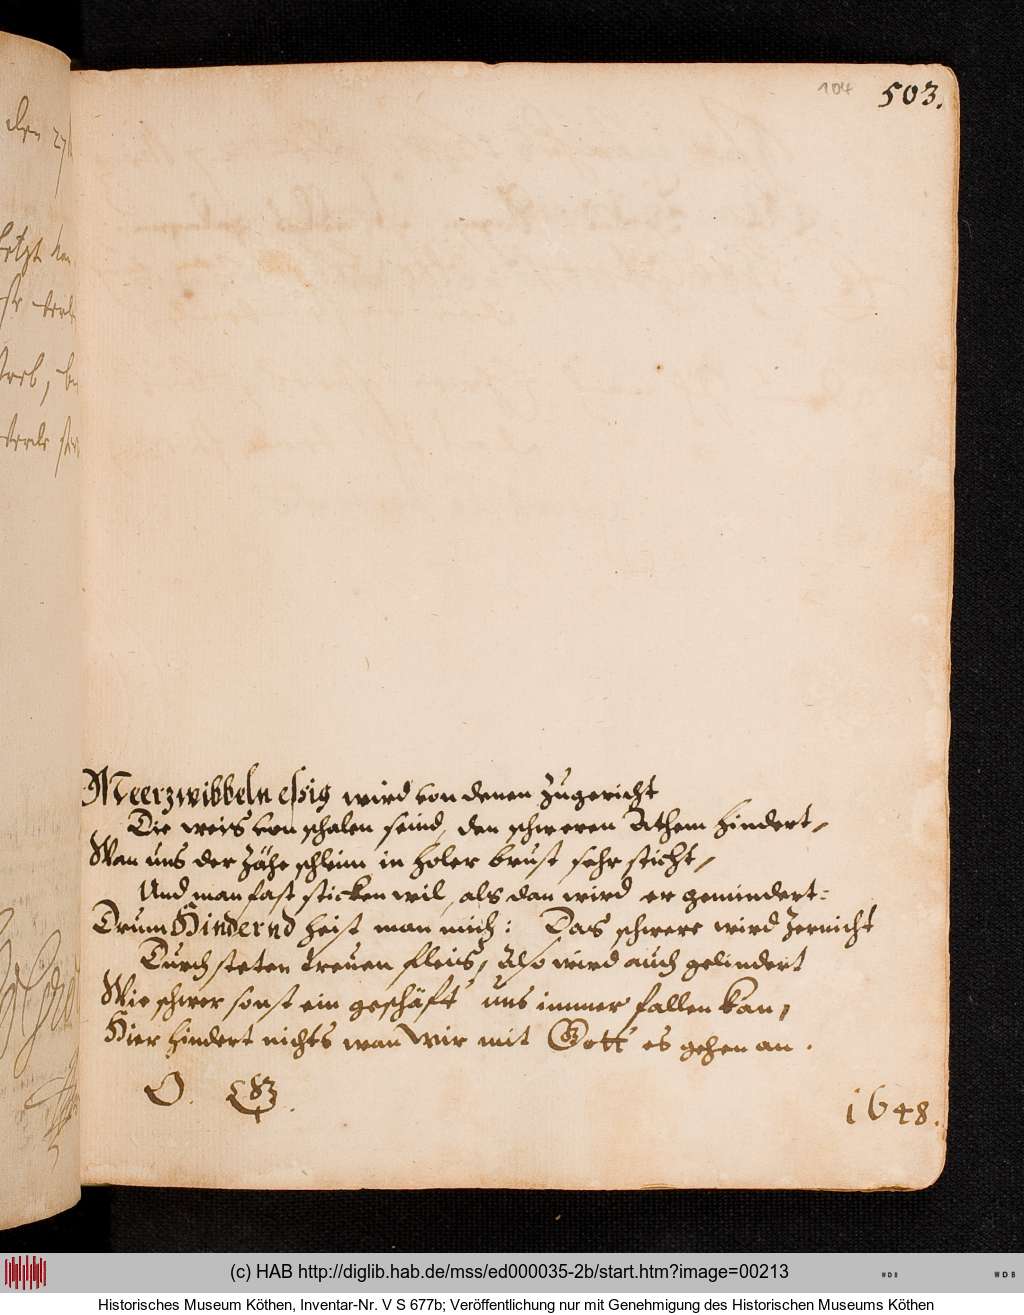 104
503.
den 27
Meerzwibbeln eßig wird von denen zugericht
Die weis von schalen seind, den schweren Athem hindert,
Wan uns der zähe schleim in holer brust sehr sticht,
Und man fast sticken wil, als dan wird er gemindert:
Drum Hindernd heist man mich: Das schwere wird zernicht
Durch steten treuen fleis, Also wird auch gelindert
Wie schwer sonst ein geschäft uns immer fallen kan,
Hier hindert nichts wan wir mit Gott es gehen an.
1648.
(c) HAB http://diglib.hab.de/mss/ed000035-2b/start.htm?image=00213
WDB
WDB
Historisches Museum Köthen, Inventar-Nr. V S 677b; Veröffentlichung nur mit Genehmigung des Historischen Museums Köthen